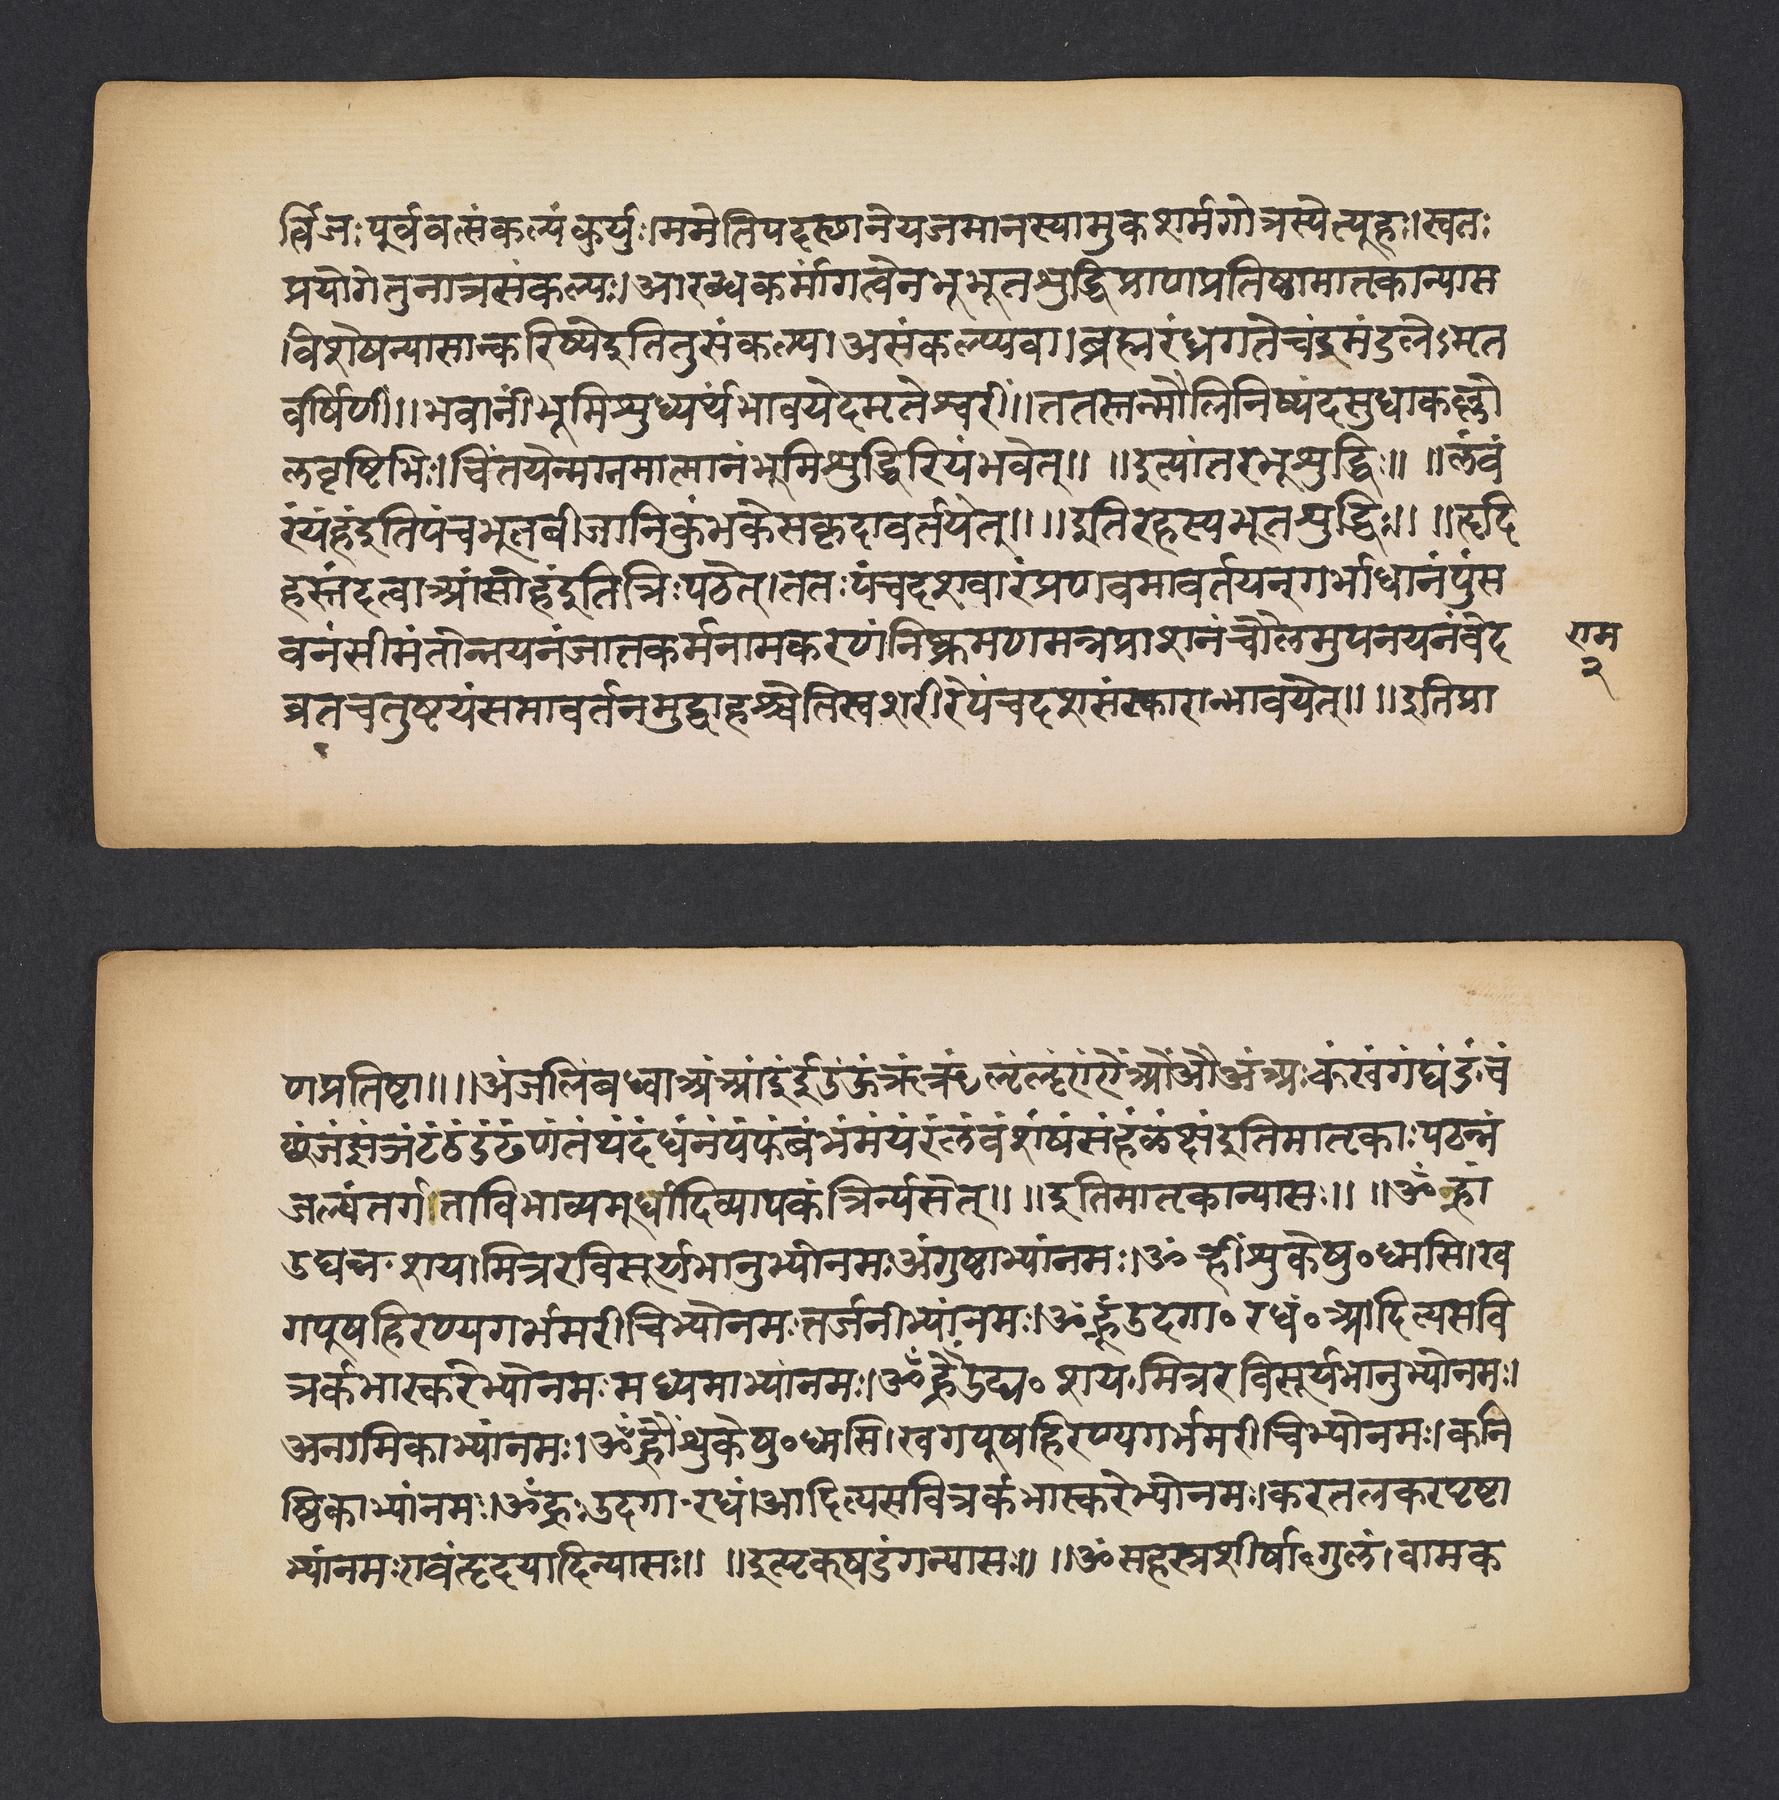 र्त्विजः पूर्ववत्संकल्पंकुर्युः।ममेतिपदस्छानेयजमानस्यामुकशर्मगोत्रस्येत्यूहः।स्वतः
प्रयोगेतुनात्रसंकल्पः।आरब्धकर्मांगत्वेनभूभूतशुद्धिप्राणप्रतिष्ठामातृकान्यास
विशेषन्यासान्करिष्येइतितुसंकल्प्य।असंकल्प्यवा।ब्रह्मरंध्रगतेचंद्रमंडलेऽमृत
वर्षिणीं॥भवानींभूमिशुध्यर्थंभावयेदमृतेश्वरीं॥ततस्तन्मौलिनिष्यंदसुधाकल्लो
लवृष्टिभिः।चिंतयेन्मग्नमात्मानंभूमिशुद्धिरियंभवेत्॥ ॥इत्यांतरभूशुद्धिः॥ ॥लंवं
रंयंहंइतिपंचभूतबीजानिकुंभकेसकृदावर्तयेत्॥ ॥इतिरहस्यभूतशुद्धिः॥ ॥हृदि
हस्तंदत्वाआंसोहंइतित्रिःपठेत्।ततःपंचदशवारंप्रणवमावर्तयन्गर्भाधानंपुंस
वनंसीमंतोन्नयनंजातकर्मनामकरणंनिष्क्रमणमन्नप्राशनंचौलमुपनयनंवेद
राम
२
व्रतचतुष्टयंसमावर्तनमुद्वाहश्चेतिस्वशरीरेपंचदशसंस्कारान्भावयेत्॥ ॥इतिप्रा
णप्रतिष्टा॥ ॥अंजलिंबध्वाअंआंइंईंउंऊंऋंॠंऌंॡंएंऐंओंऔंअंअःकंखंगंघंङंचं
छंजंझंञंटंठंडंढंणंतंथंदंधंनंपंफंबंभंमंयंरंलंवंशंषंसंहंळंक्षंइतिमातृकाःपठन्नं
जल्यंतर्गताविभाव्यमूर्धादिव्यापकंत्रिर्न्यसेत्॥ ॥इतिमातृकान्यासः॥ ॥ॐह्रां
उद्यन्न॰शय।मित्ररविसूर्यभानुभ्योनमःअंगुष्ठाभ्यांनमः।ॐह्रींशुकेषु॰ध्मसि।ख
गपूषहिरण्यगर्भमरीचिभ्योनमःतर्जनीभ्यांनमः।ॐह्रूंउदगा॰रधं॰आदित्यसवि
त्रर्कभास्करेभ्योनमःमध्यमाभ्यांनमः।ॐह्रैंउद्य॰शय।मित्ररविसूर्यभानुभ्योनमः।
अनामिकाभ्यांनमः।ॐह्रौंशुकेषु॰ध्मसि।खगपूषहिरण्यगर्भमरीचिभ्योनमः।कनि
ष्ठिकाभ्यांनमः।ॐह्रःउदगा॰रधं।आदित्यसवित्रर्कभास्करेभ्योनमः।करतलकरपृष्टा
भ्यांनमःएवंहृदयादिन्यासः॥ ॥इत्पृकषडंगन्यासः॥ ॥ॐसहस्रशीर्षा॰गुलं।वामक